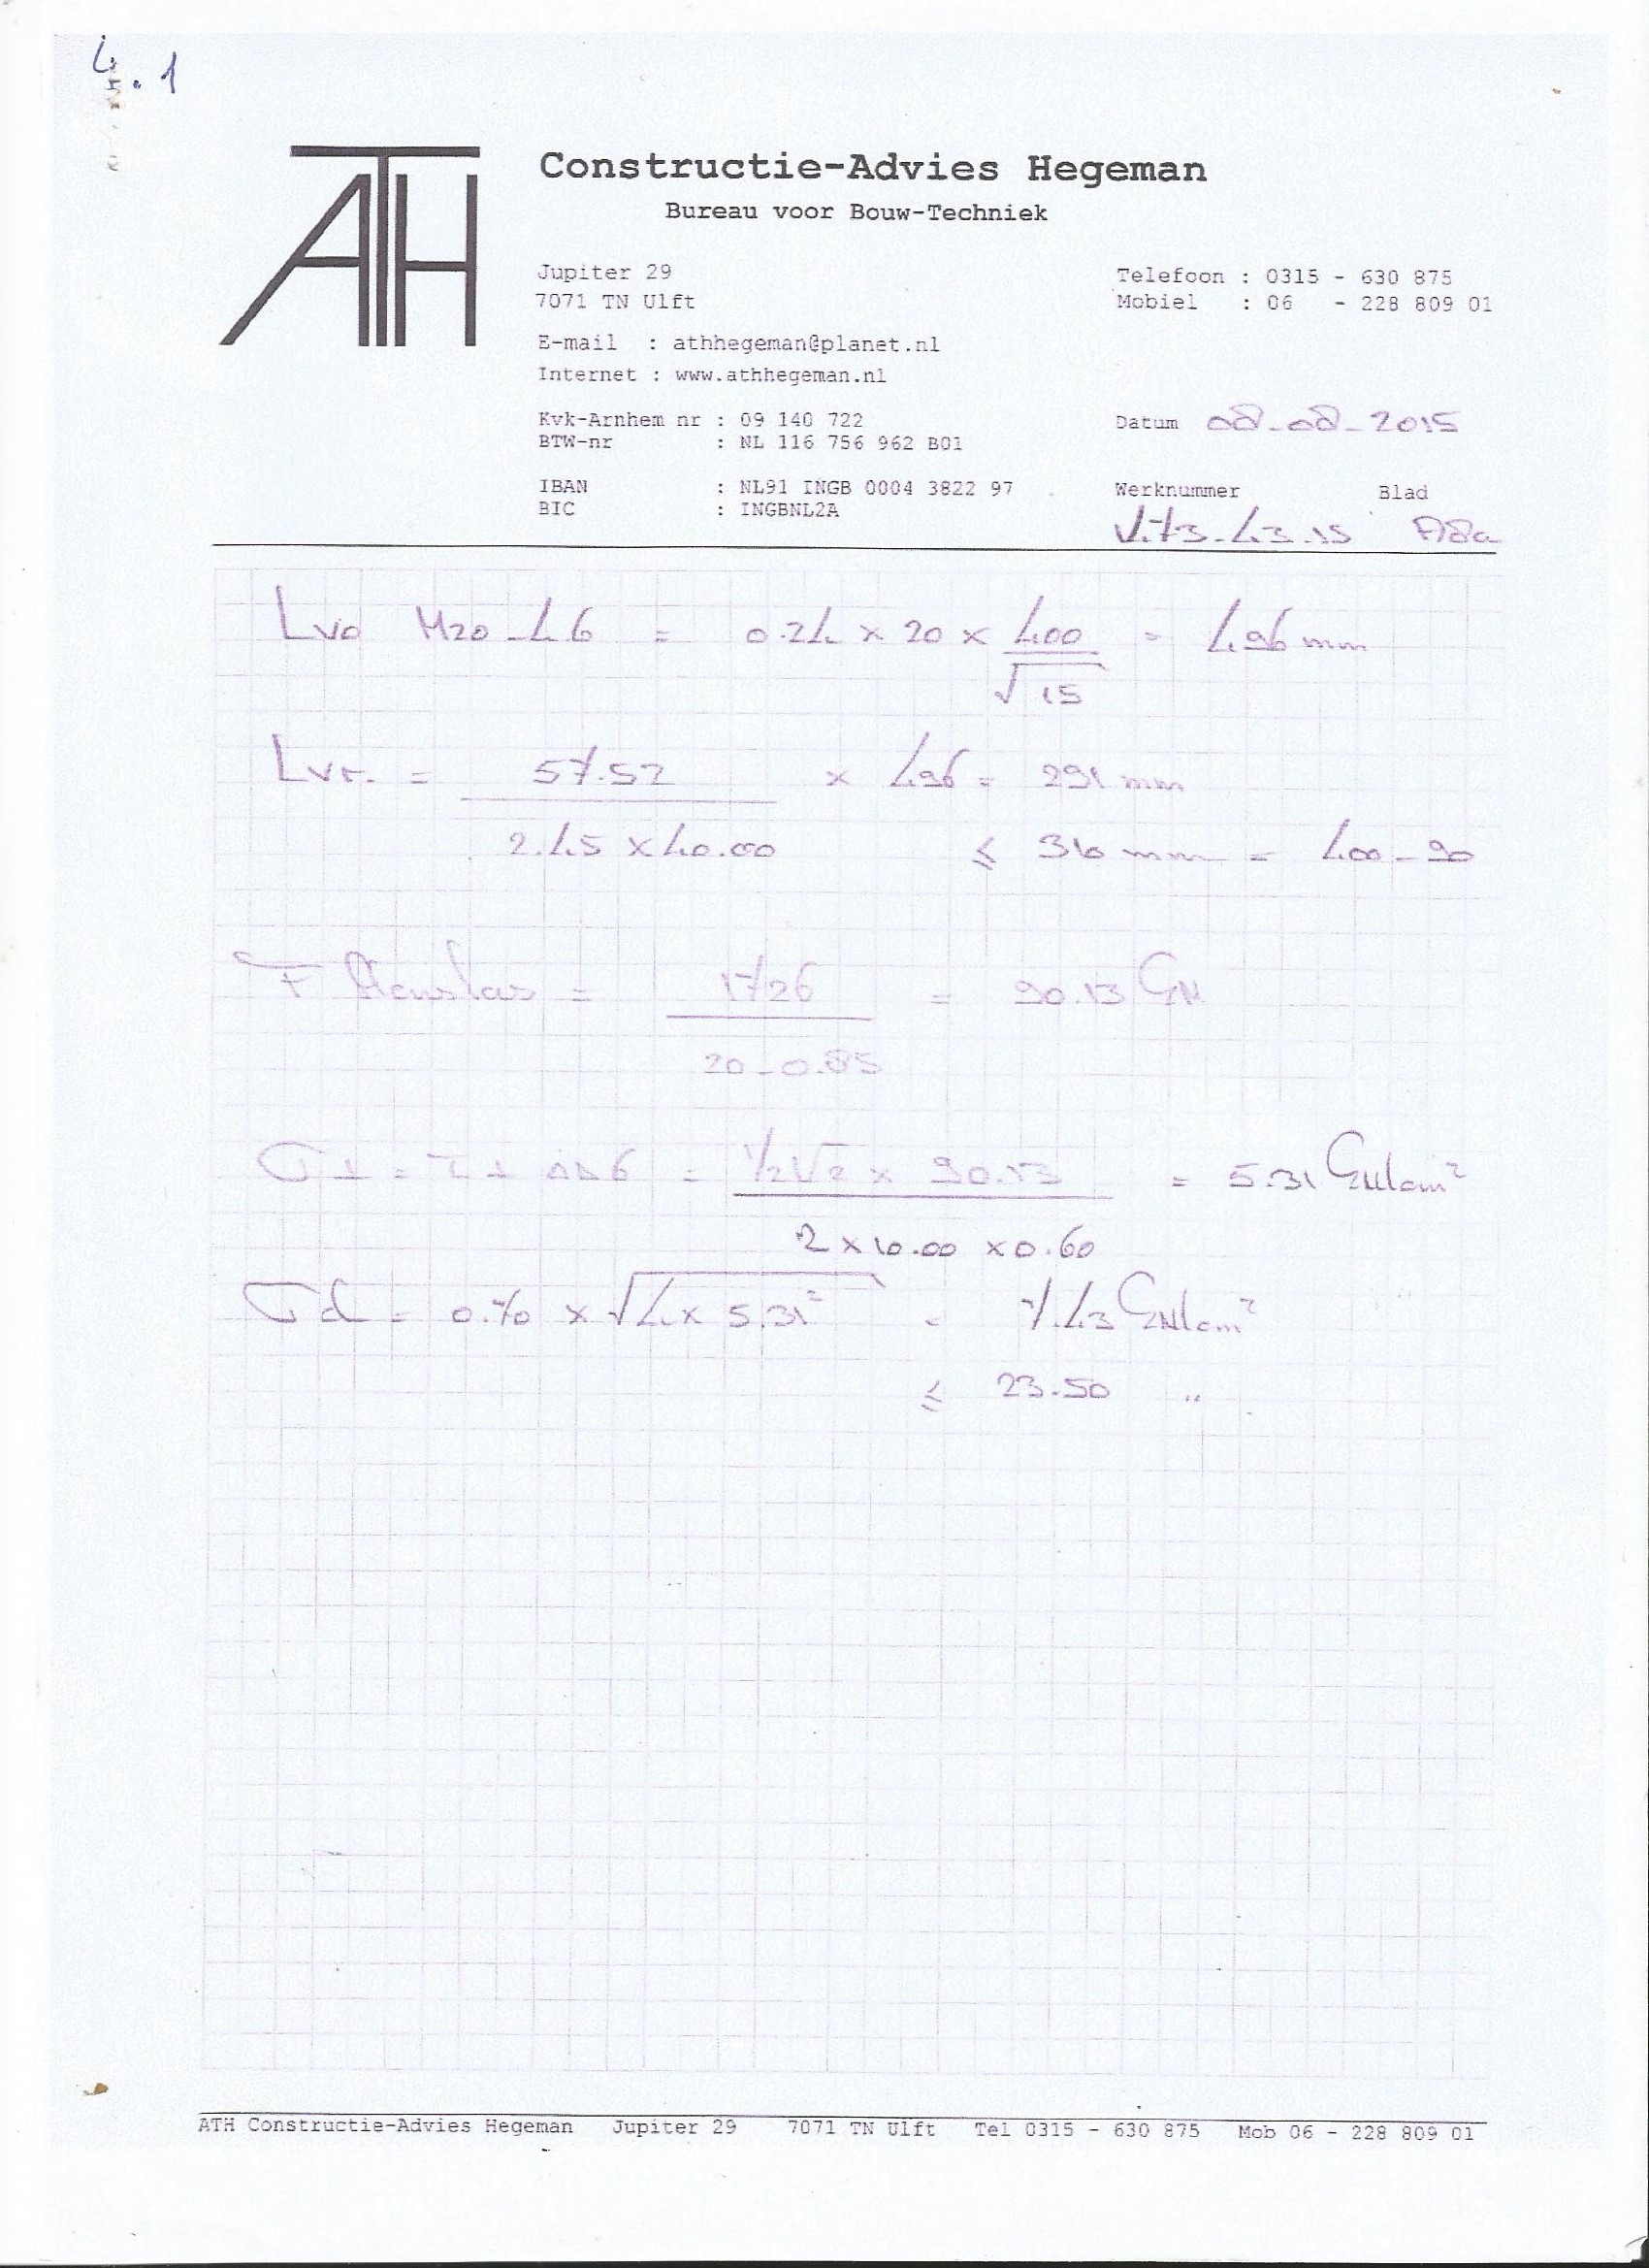 4.1
ATH
Constructie-Advies Hegeman
Bureau voor Bouw-Techniek
Jupiter 29
7071 TN Ulft
Telefoon : 0315 - 630 875
Mobiel : 06 - 228 809 01
E-mail : athhegeman@planet.nl
Internet : www.athhegeman.nl
Kvk-Arnhem nr : 09 140 722
BTW-nr : NL 116 756 962 B01
Datum 08-08-2015
IBAN : NL91 INGB 0004 3822 97
BIC : INGBNL2A
Werknummer Blad
473-43-15 A8a
Lvo M20-4.6 = 0.24 x 20 x 400 = 496 mm
√15
Lvr. = 57.52 x 496 = 291 mm
2.45 x 40.00 ≤ 310 mm = 400-90
F = 1726 = 90.13 GN
20-0.85
σ⊥ = τ⊥ ΔΔ6 = ½√2 x 90.13 = 5.31 GN/cm²
2 x 10.00 x 0.60
σd = 0.70 x √4 x 5.31² = 7.43 GN/cm²
≤ 23.50 "
ATH Constructie-Advies Hegeman Jupiter 29 7071 TN Ulft Tel 0315 - 630 875 Mob 06 - 228 809 01